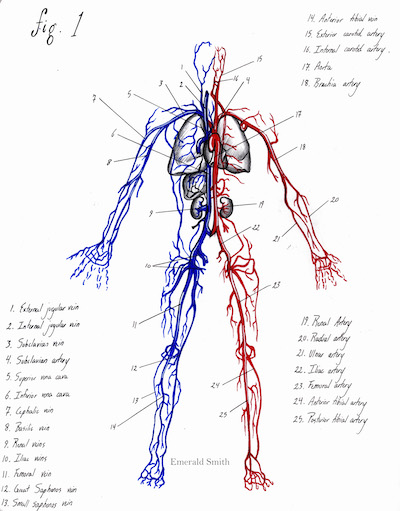 fig. 1
14. Anterior tibial vein
15. Exterior carotid artery
16. Internal carotid artery.
17. Aorta
18. Brachia artery
1
2
3
4
5
6
7
8
9
10
11
12
13
14
15
16
17
18
19
20
21
22
23
24
25
1. External jugular vein
2. Internal jugular vein
3. Subclavian vein
4. Subclavian artery
5. Superior vena cava
6. Inferior vena cava
7. Cephalic vein
8. Basilic vein
9. Renal veins
10. Iliac veins
11. Femoral vein
12. Great Saphenous vein
13. Small saphenous vein
19. Renal Artery
20. Radial artery
21. Ulnar artery
22. Iliac artery
23. Femoral artery
24. Anterior tibial artery
25. Posterior tibial artery
Emerald Smith